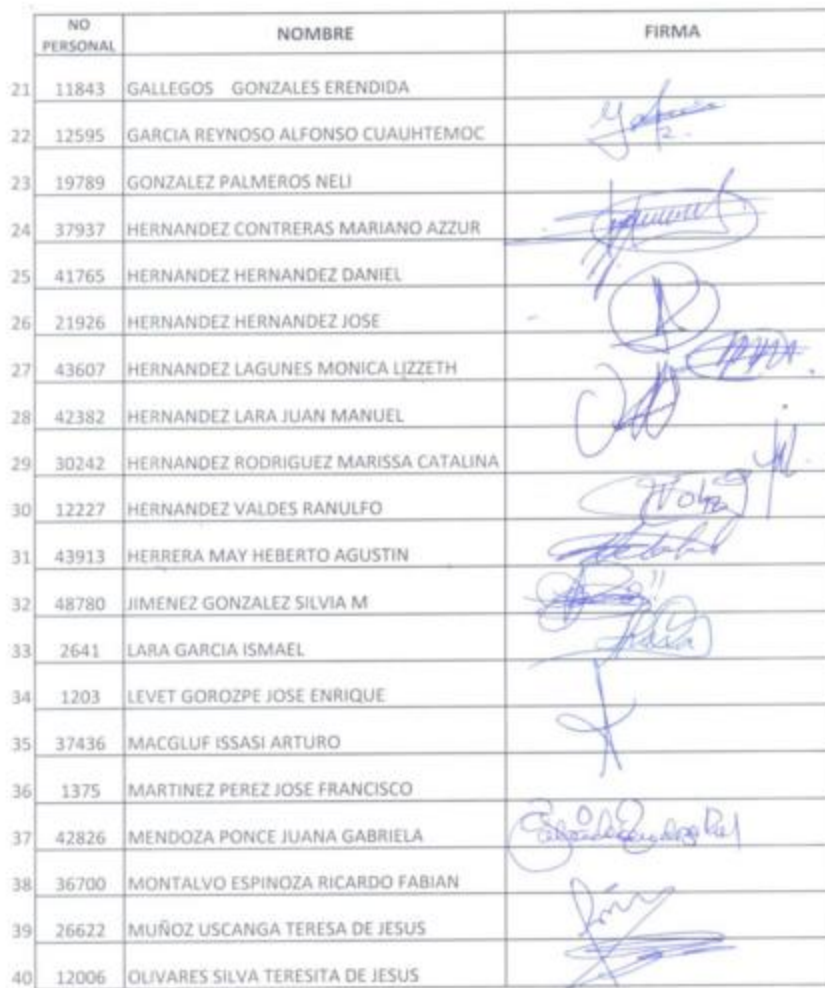 NO PERSONAL NOMBRE FIRMA
21 11843 GALLEGOS GONZALES ERENDIDA
22 12595 GARCIA REYNOSO ALFONSO CUAUHTEMOC
23 19789 GONZALEZ PALMEROS NELI
24 37937 HERNANDEZ CONTRERAS MARIANO AZZUR
25 41765 HERNANDEZ HERNANDEZ DANIEL
26 21926 HERNANDEZ HERNANDEZ JOSE
27 43607 HERNANDEZ LAGUNES MONICA LIZZETH
28 42382 HERNANDEZ LARA JUAN MANUEL
29 30242 HERNANDEZ RODRIGUEZ MARISSA CATALINA
30 12227 HERNANDEZ VALDES RANULFO
31 43913 HERRERA MAY HEBERTO AGUSTIN
32 48780 JIMENEZ GONZALEZ SILVIA M
33 2641 LARA GARCIA ISMAEL
34 1203 LEVET GOROZPE JOSE ENRIQUE
35 37436 MACGLUF ISSASI ARTURO
36 1375 MARTINEZ PEREZ JOSE FRANCISCO
37 42826 MENDOZA PONCE JUANA GABRIELA
38 36700 MONTALVO ESPINOZA RICARDO FABIAN
39 26622 MUÑOZ USCANGA TERESA DE JESUS
40 12006 OLIVARES SILVA TERESITA DE JESUS